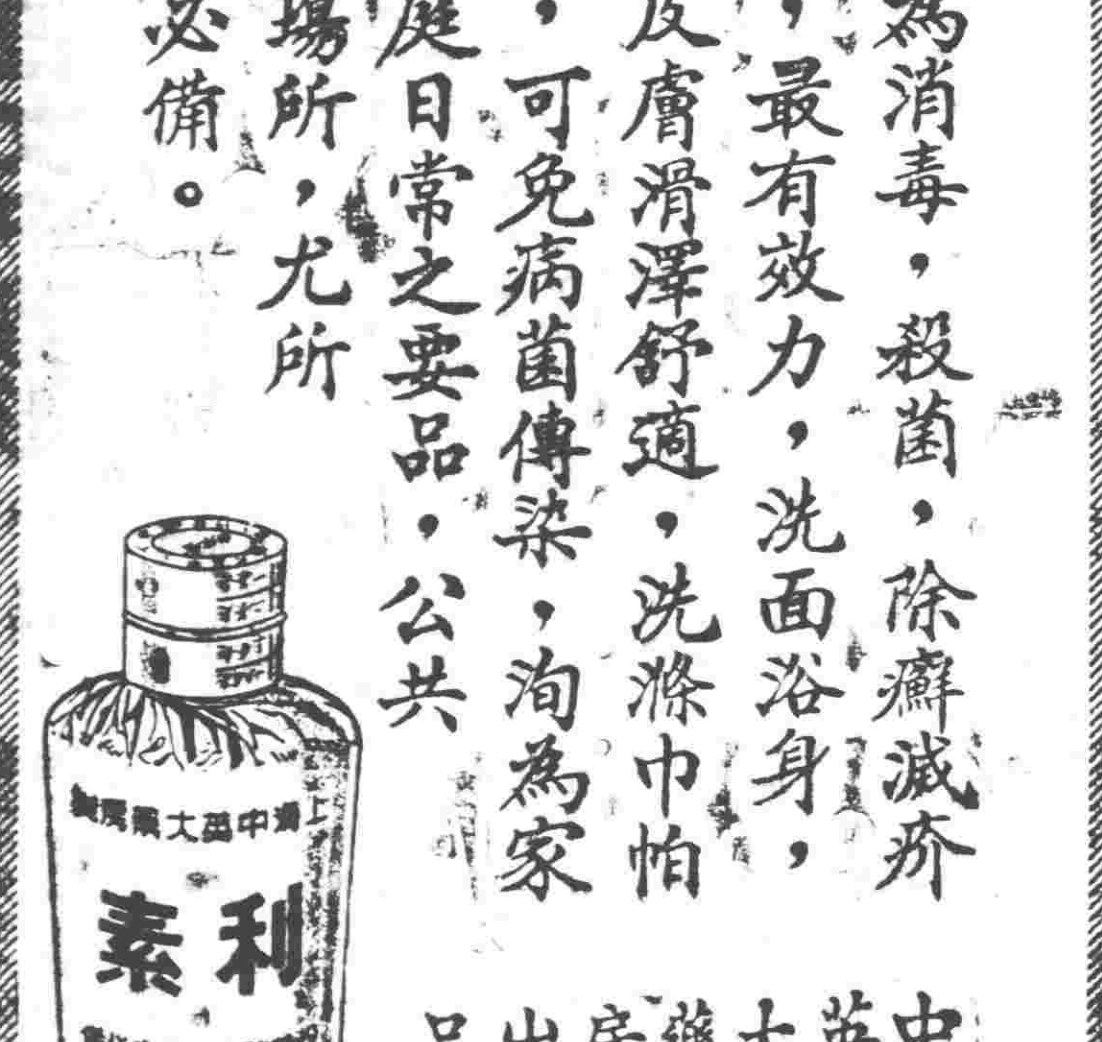 為消毒，殺菌，除癬滅疥
，最有效力，洗面浴身，
皮膚滑澤舒適，洗滌巾帕
，可免病菌傳染，洵為家
庭日常之要品，公共
場所，尤所
必備。
上海中英大藥房製
利素
中英大藥房出品